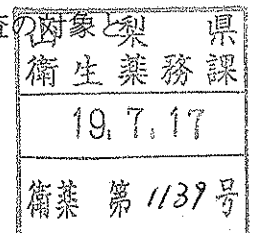 査の対象と
山梨県
衛生薬務課
19.7.17
衛薬 第1139号